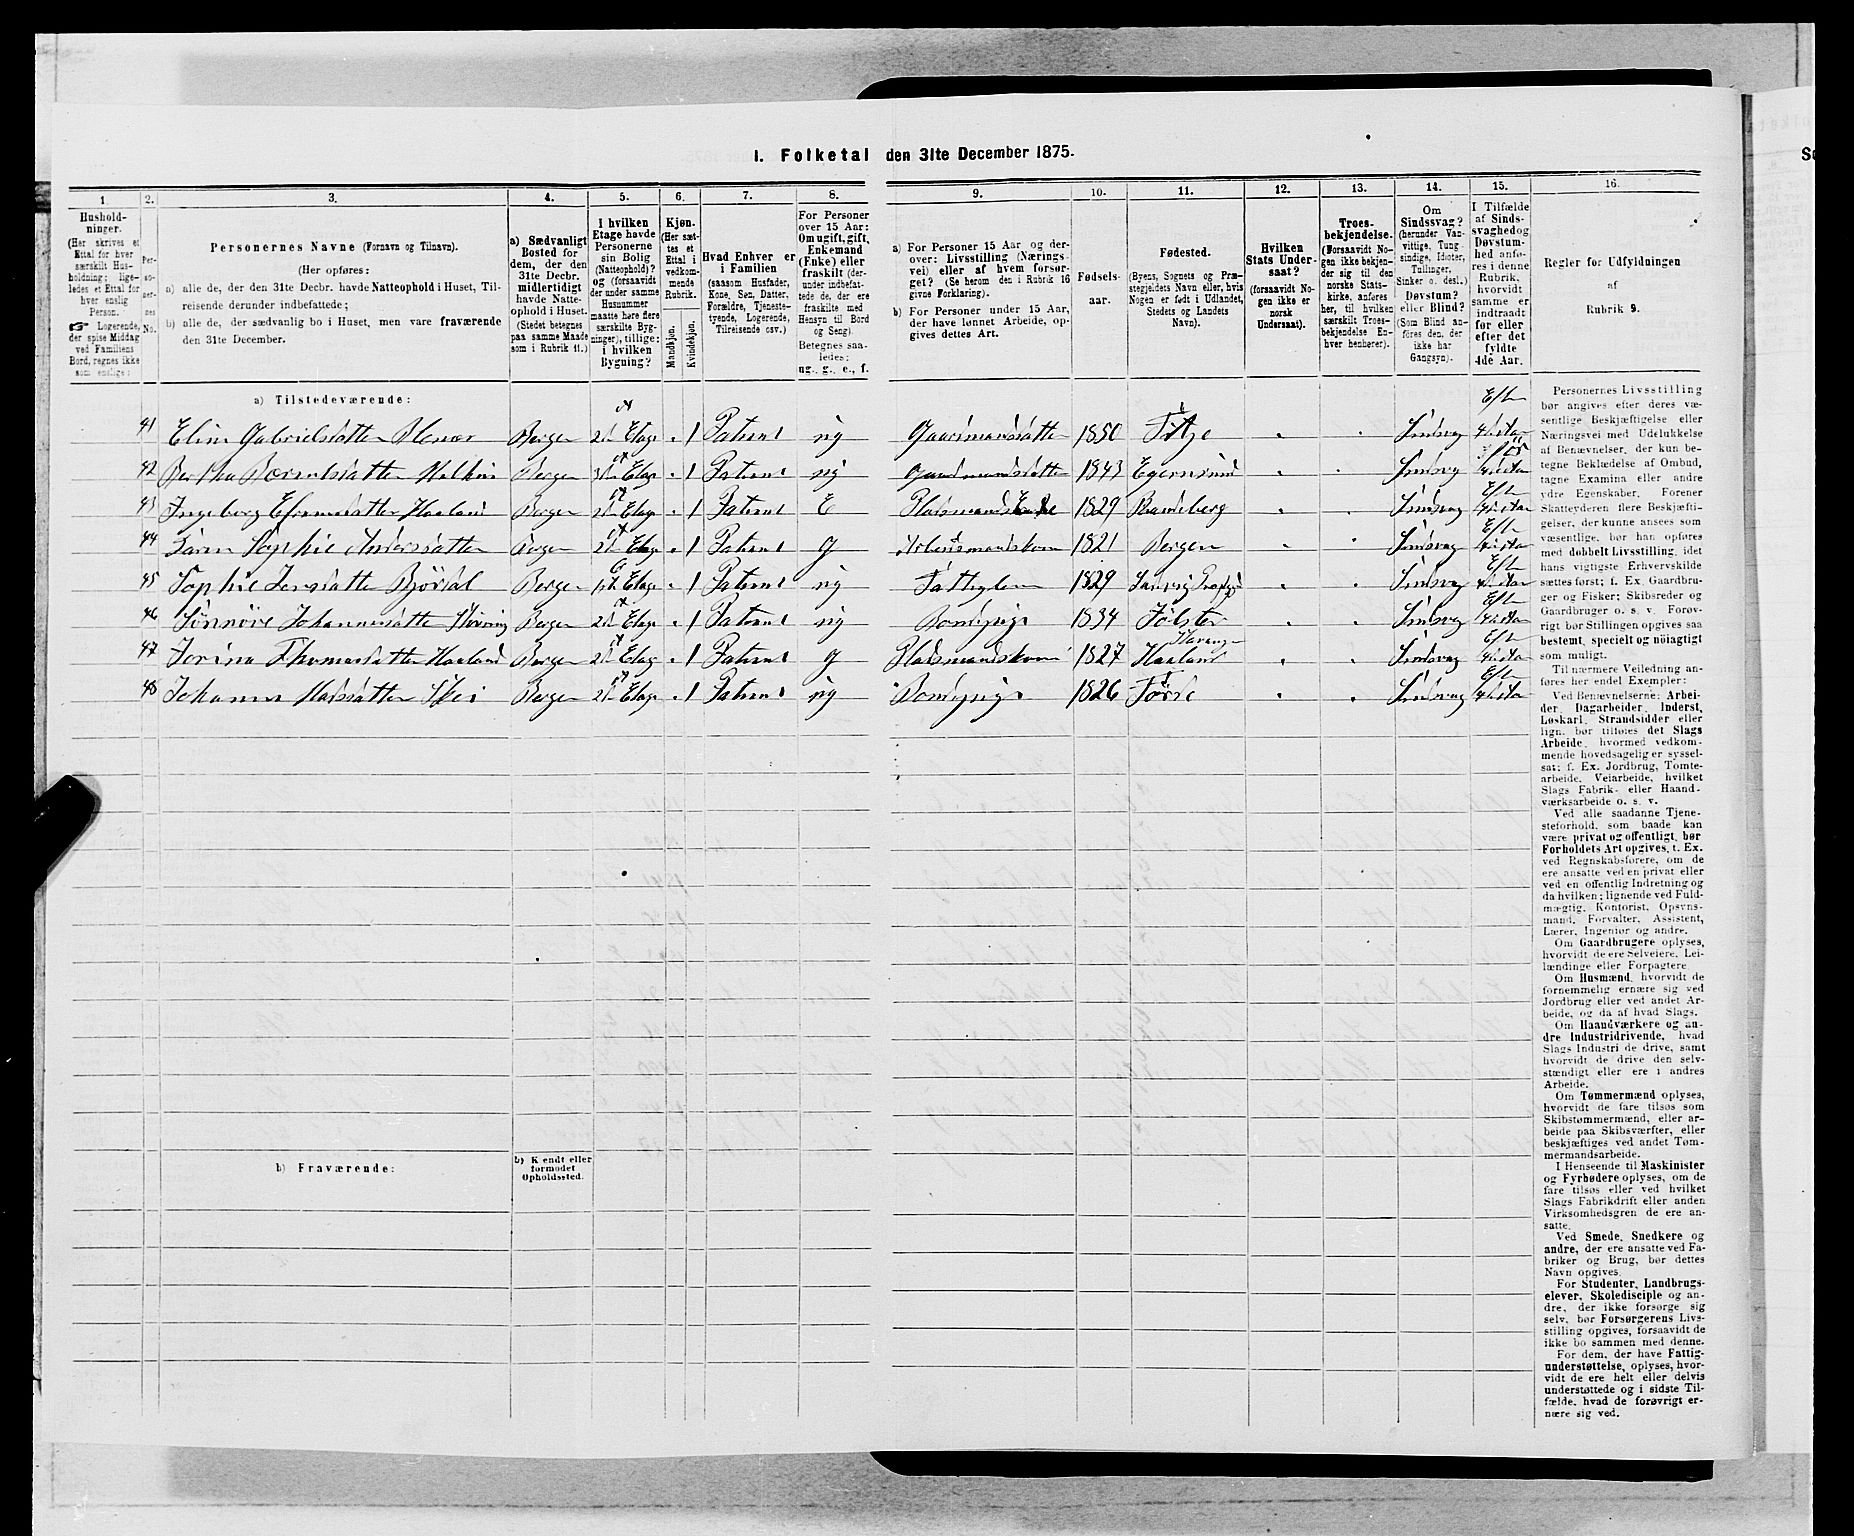 1. Folketal den 31te December 1875.
1. 2. 3. 4. 5. 6. 7. 8. 9. 10. 11. 12. 13. 14. 15. 16.
Hushold-
ninger.
(Her skrives et
Ettal for hver
særskilt Hus-
holdning; lige-
ledes et Ettal for
hver enslig
Person.
☞ Logerende,
der spise Middag
ved Familiens
Bord, regnes ikke
som enslige:
Per-
so-
ner-
nes
No.
Personernes Navne (Fornavn og Tilnavn).
(Her opføres:
a) alle de, der den 31te Decbr. havde Natteophold i Huset, Til-
reisende derunder indbefattede;
b) alle de, der sædvanlig bo i Huset, men vare fraværende
den 31te December.
a) Sædvanligt
Bosted for
dem, der den
31te Decbr.
midlertidigt
havde Natte-
ophold i Huset.
(Stedet betegnes
paa samme Maade
som i Rubrik 11.)
I hvilken
Etage havde
Personerne
sin Bolig
(Natteophold)?
og (forsaavidt
der under samme
Husnummer
maatte høre flere
særskilte Byg-
ninger), tillige:
i hvilken
Bygning?
Kjøn.
(Her sæt-
tes et
Ettal i
vedkom-
mende
Rubrik.
Mandkjøn.
Kvindekjøn.
Hvad Enhver er
i Familien
(saasom Husfader,
Kone, Søn, Datter,
Forældre, Tjeneste-
tyende, Logerende,
Tilreisende osv.)
For Personer
over 15 Aar:
Om ugift, gift,
Enkemand
(Enke) eller
fraskilt (der-
under indbefat-
tede de, der ere
fraskilte med
Hensyn til Bord
og Seng).
Betegnes saa-
ledes:
ug., g., e., f.
a) For Personer 15 Aar og der-
over: Livsstilling (Nærings-
vei) eller af hvem forsør-
get? (Se herom den i Rubrik 16
givne Forklaring).
b) For Personer under 15 Aar,
der have lønnet Arbeide, op-
gives dettes Art.
Fødsels-
aar.
Fødested.
(Byens, Sognets og Præ-
stegjeldets Navn eller, hvis
Nogen er født i Udlandet,
Stedets og Landets
Navn).
Hvilken
Stats Under-
saat?
(forsaavidt No-
gen ikke er
norsk
Undersaat).
Troes-
bekjendelse.
(Forsaavidt No-
gen ikke bekjen-
der sig til den
norske Stats-
kirke, anføres
her, til hvilken
særskilt Troes-
bekjendelse En-
hver henhører).
Om
Sindssvag?
(herunder Van-
vittige, Tung-
sindige, Idioter,
Tullinger,
Sinker o. desl.)
Døvstum?
eller Blind?
(Som Blind an-
føres den, der
ikke har
Gangsyn).
I Tilfælde
af Sinds-
svaghed og
Døvstum-
hed anfø-
res i denne
Rubrik,
hvorvidt
samme er
indtraadt
før eller
efter det
fyldte
4de Aar.
Regler for Udfyldningen
af
Rubrik 9.
a) Tilstedeværende:
41 Bergen Etage 1 Patient ug 1850 Sindsvag
42 Bergen Etage 1 Patient ug Gaardmandsdatter 1843 Egersund Sindsvag
43 Ingeborg Haaland Bergen Etage 1 Patient E Pladsmands Enke 1829 Randeberg Sindsvag
44 Sophie Andersdatter Bergen Etage 1 Patient g Arbeidsmandskone 1821 Bergen Sindsvag
45 Sophie Jensdatter Bergen Etage 1 Patient ug 1829 Sindsvag
46 Johannesdatter Bergen Etage 1 Patient ug Bondepige 1834 Jølster Sindsvag
47 Jorina Thomasdatter Haaland Bergen Etage 1 Patient g Pladsmandskone 1827 Haaland Sindsvag
48 Madsdatter Bergen Etage 1 Patient ug Bondepige 1826 Førde Sindsvag
b) Fraværende:
b) Kjendt eller
formodet
Opholdssted.
Personernes Livsstilling
bør angives efter deres væ-
sentlige Beskjæftigelse eller
Næringsvei med Udelukkelse
af Benævnelser, der kun be-
tegne Beklædelse af Ombud,
tagne Examina eller andre
ydre Egenskaber. Forener
Skatteyderen flere Beskjæfti-
gelser, der kunne ansees som
væsentlige, bør han opføres
med dobbelt Livsstilling, idet
hans vigtigste Erhvervskilde
sættes først; f. Ex. Gaardbru-
ger og Fisker; Skibsreder og
Gaardbruger o. s. v. Forøv-
rigt bør Stillingen opgives saa
bestemt, specielt og nöiagtigt
som muligt.
Til nærmere Veiledning an-
føres her endel Exempler:
Ved Benævnelserne: Arbei-
der, Dagarbeider, Inderst,
Løskarl, Strandsidder eller
lign. bør tilføres det Slags
Arbeide, hvormed vedkom-
mende hovedsagelig er syssel-
sat; f. Ex. Jordbrug, Tomte-
arbeide, Veiarbeide, hvilket
Slags Fabrik- eller Haand-
værksarbeide o. s. v.
Ved alle saadanne Tjene-
steforhold, som baade kan
være privat og offentligt, bør
Forholdets Art opgives, t. Ex.
ved Regnskabsførere, om de
ere ansatte ved en privat eller
ved en offentlig Indretning og
da hvilken; lignende ved Fuld-
mægtig, Kontorist, Opsyns-
mand, Forvalter, Assistent,
Lærer, Ingeniør og andre.
Om Gaardbrugere oplyses,
hvorvidt de ere Selveiere, Lei-
lændinge eller Forpagtere.
Om Husmænd, hvorvidt de
fornemmelig ernære sig ved
Jordbrug eller ved andet Ar-
beide, og da af hvad Slags.
Om Haandværkere og an-
dre Industridrivende, hvad
Slags Industri de drive, samt
hvorvidt de drive den selv-
stændigt eller ere i andres
Arbeide.
Om Tømmermænd oplyses,
hvorvidt de fare tilsøs som
Skibstømmermænd, eller ar-
beide paa Skibsværfter, eller
beskjæftiges ved andet Tøm-
mermandsarbeide.
I Henseende til Maskinister
og Fyrbødere oplyses, om de
fare tilsøs eller ved hvilket
Slags Fabrikdrift eller anden
Virksomhedsgren de ere an-
satte.
Ved Smede, Snedkere og
andre, der ere ansatte ved Fa-
briker og Brug, bør dettes
Navn opgives.
For Studenter, Landbrugs-
elever, Skoledisciple og an-
dre, der ikke forsørge sig
selv, bør Forsørgerens Livs-
stilling opgives, forsaavidt de
ikke bo sammen med denne.
For dem, der have Fattig-
understøttelse, oplyses, hvor-
vidt de ere helt eller delvis
understøttede og i sidste Til-
fælde, hvad de forøvrigt er-
nære sig ved.